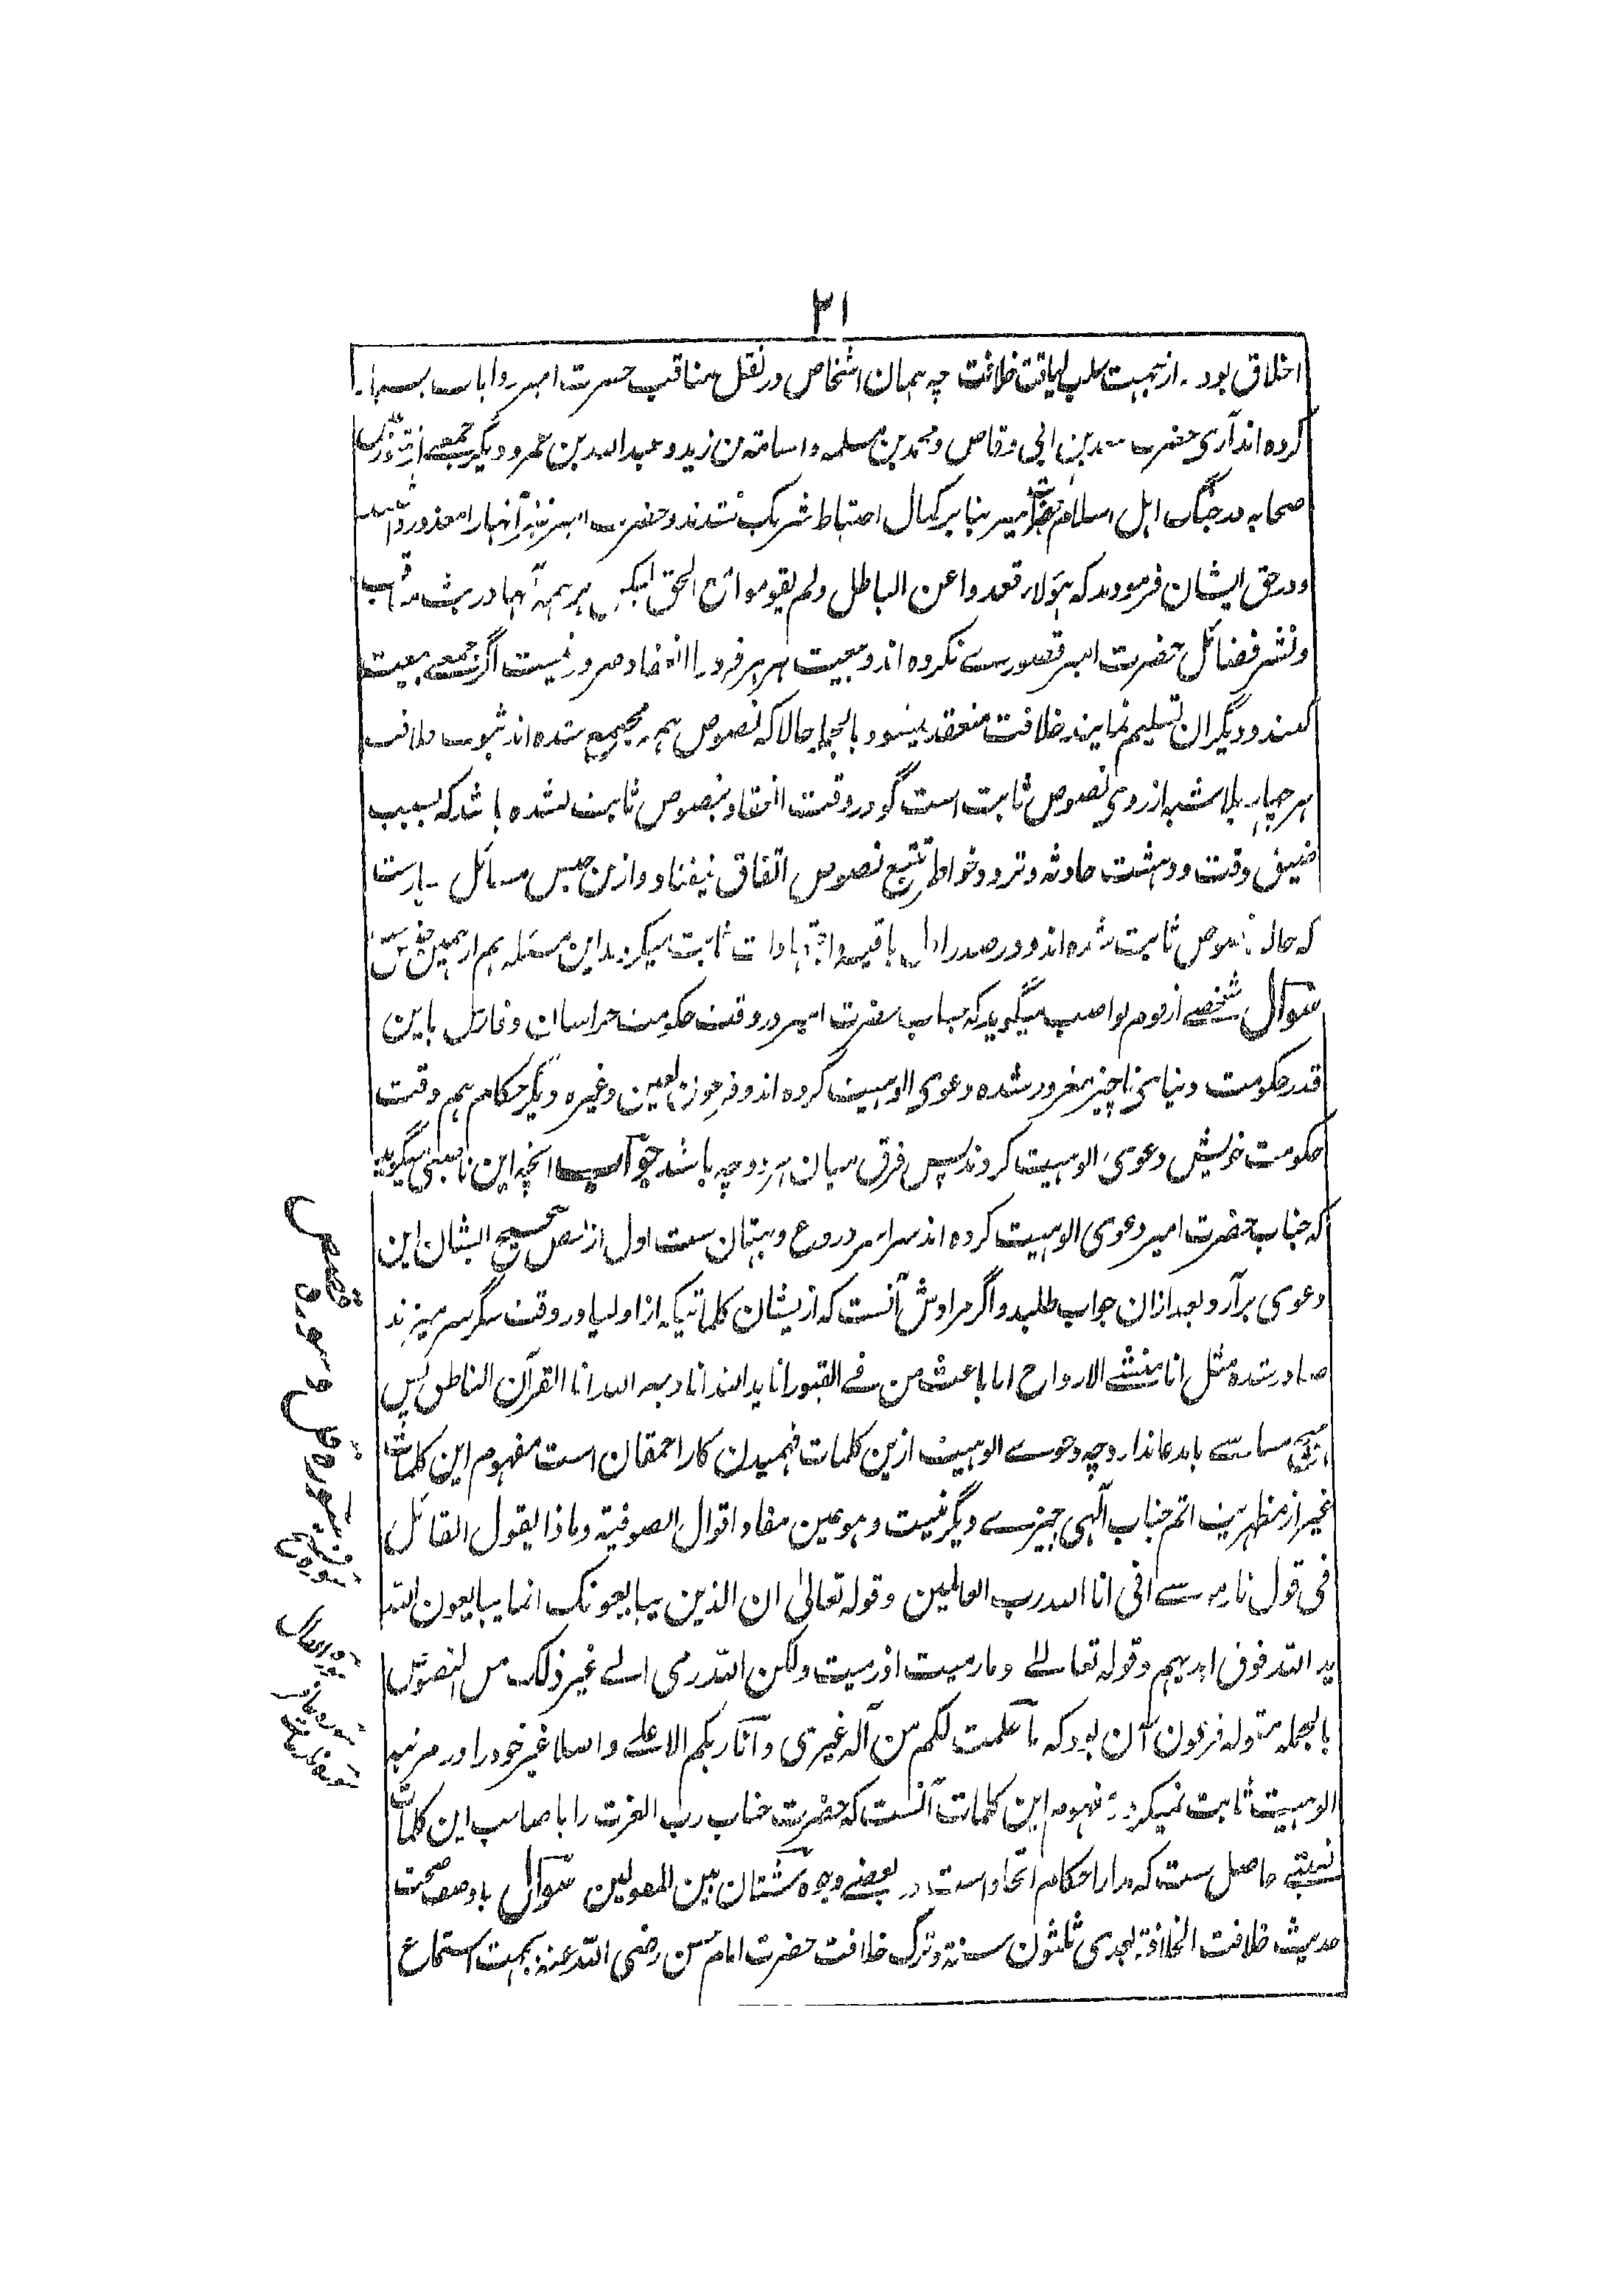 ۲۱
اخلاق بود۔ از جہت سلب لیاقت خلافت چہ ہمان اشخاص در نقل مناقب حضرت امیر روایات بسیار
کردہ اند آری حضرت سعد بن ابی وقاص و محمد بن مسلمہ و اسامتہ بن زید و عبد اللہ بن عمر و دیگر جمعے از
صحابہ در جنگ اہل اسلام حضرت امیر بنابر کمال احتیاط شریک نشدند و حضرت امیر نیز آنہا را معذور داشتند
و در حق ایشان فرمودند کہ ہؤلاء قعدوا عن الباطل ولم یقوموا مع الحق لیکن ہر ہمہ آنہا در مناقب
و نشر فضائل حضرت امیر قصورے نکردہ اند و بیعت ہر ہر فرد را انعقاد ضرور نیست اگر جمعے بیعت
کنند و دیگران تسلیم نمایند خلافت منعقد میشود بالجملہ حالا کہ نصوص ہمہ مجتمع شدہ اند ثبوت خلافت
ہر چہار بلا شبہ از روی نصوص ثابت است گو در وقت انعقاد بنصوص ثابت نشدہ باشد کہ بسبب
ضیق وقت و دہشت حادثہ و تردد خواطر تتبع نصوص اتفاق نیفتاد و ازین جنس مسائل بسیارست
کہ حالا بنصوص ثابت شدہ اند و در صدر اول باقیسہ و اجتہادات ثابت میکردند این مسئلہ ہم از ہمین جنس ست
سوال شخصے از قوم نواصب میگوید کہ جناب حضرت امیر در وقت حکومت خراسان و فارس باین
قدر حکومت دنیای ناچیز مغرور شدہ دعوی الوہیت کردہ اند و فرعون لعین وغیرہ دیگر حکام ہم وقت
حکومت خویش دعوی الوہیت کردند پس فرق میان ہر دو چہ باشد جواب انچہ این ناصبی میگوید
کہ جناب حضرت امیر دعوی الوہیت کردہ اند سراسر دروغ و بہتان ست اول از نقل صحیح ایشان این
دعوی بر آرد بعد ازان جواب طلبد و اگر مرادش آنست کہ ازیشان کلماتیکہ از اولیا در وقت سکر سر میزند
صادر شدہ مثل انا منشئ الارواح انا باعث من فے القبور انا ید اللہ انا وجہ اللہ انا القرآن الناطق پس
ہیچ مناسبتے بادعا ندارد چہ دعوے الوہیت ازین کلمات فہمیدن کار احمقان است مفہوم این کلمات
غیر از مظہریت اتم جناب آلہی چیزے دیگر نیست و ہو عین مفاد اقوال الصوفیتہ و ماذا یقول القائل
فی قول نار موسے انی انا اللہ رب العالمین وقولہ تعالی ان الذین یبایعونک انما یبایعون اللہ
ید اللہ فوق ایدیہم وقولہ تعالے و ما رمیت اذ رمیت ولکن اللہ رمی الے غیر ذلک من النصوص
بالجملہ مقولہ فرعون آن بود کہ ما علمت لکم من آلہ غیری و انا ربکم الاعلے و اصلا غیر خود را در مرتبہ
الوہیت ثابت نمیکرد و مفہوم این کلمات آنست کہ حضرت جناب رب العزت را با صاحب این کلمات
نسبتے حاصل ست کہ مدار احکام اتحاد است در بعضے وجوہ شتان بین القولین سوال با وصف صحت
حدیث خلافت الخلافتہ بعدی ثلثون سنتہ و ترک خلافت حضرت امام حسن رضی اللہ عنہ بجہت استماع